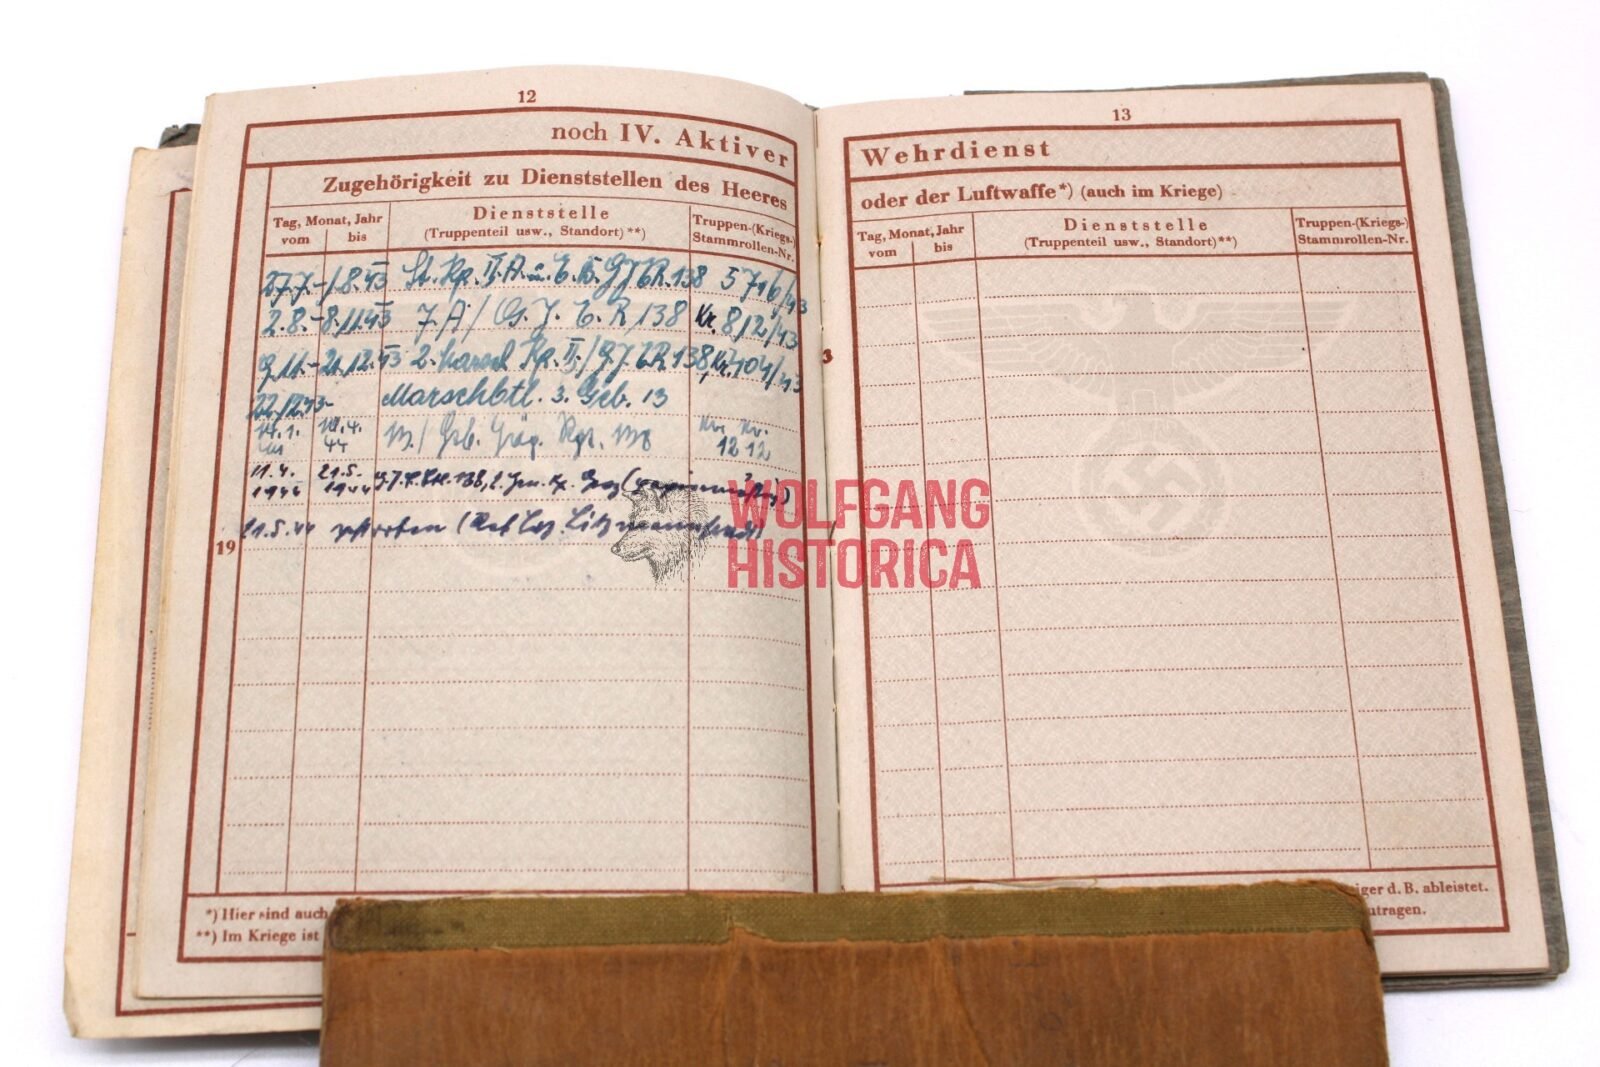 12
noch IV. Aktiver
Zugehörigkeit zu Dienststellen des Heeres
Tag, Monat, Jahr
vom bis
Dienststelle
(Truppenteil usw., Standort)**)
Truppen-(Kriegs-)
Stammrollen-Nr.
27.7.-1.8.43 St. Kp. II. A. u. E. B. GJER. 138 5 716/43
2.8.-8.11.43 7. A/ G. J. E. R 138 Kr. 812/43
9.11.-21.12.43 2. Marsch Kp. II/ G.J.E.R. 138, Kr. 404/43
22.12.43- Marschbtl. 3. Geb. 13
4.
44 / Geb. Jäg. Rgt. 138 Nr.
12 12
11.4.
1944 21.5.
1944 138, 2. Gen. Kp.
19
21.5.44 gestorben (Res. Laz. Litzmannstadt)
*) Hier sind auch
**) Im Kriege ist
13
Wehrdienst
oder der Luftwaffe*) (auch im Kriege)
Tag, Monat, Jahr
vom bis
Dienststelle
(Truppenteil usw., Standort)**)
Truppen-(Kriegs-)
Stammrollen-Nr.
3
iger d. B. ableistet.
utragen.
WOLFGANG
HISTORICA